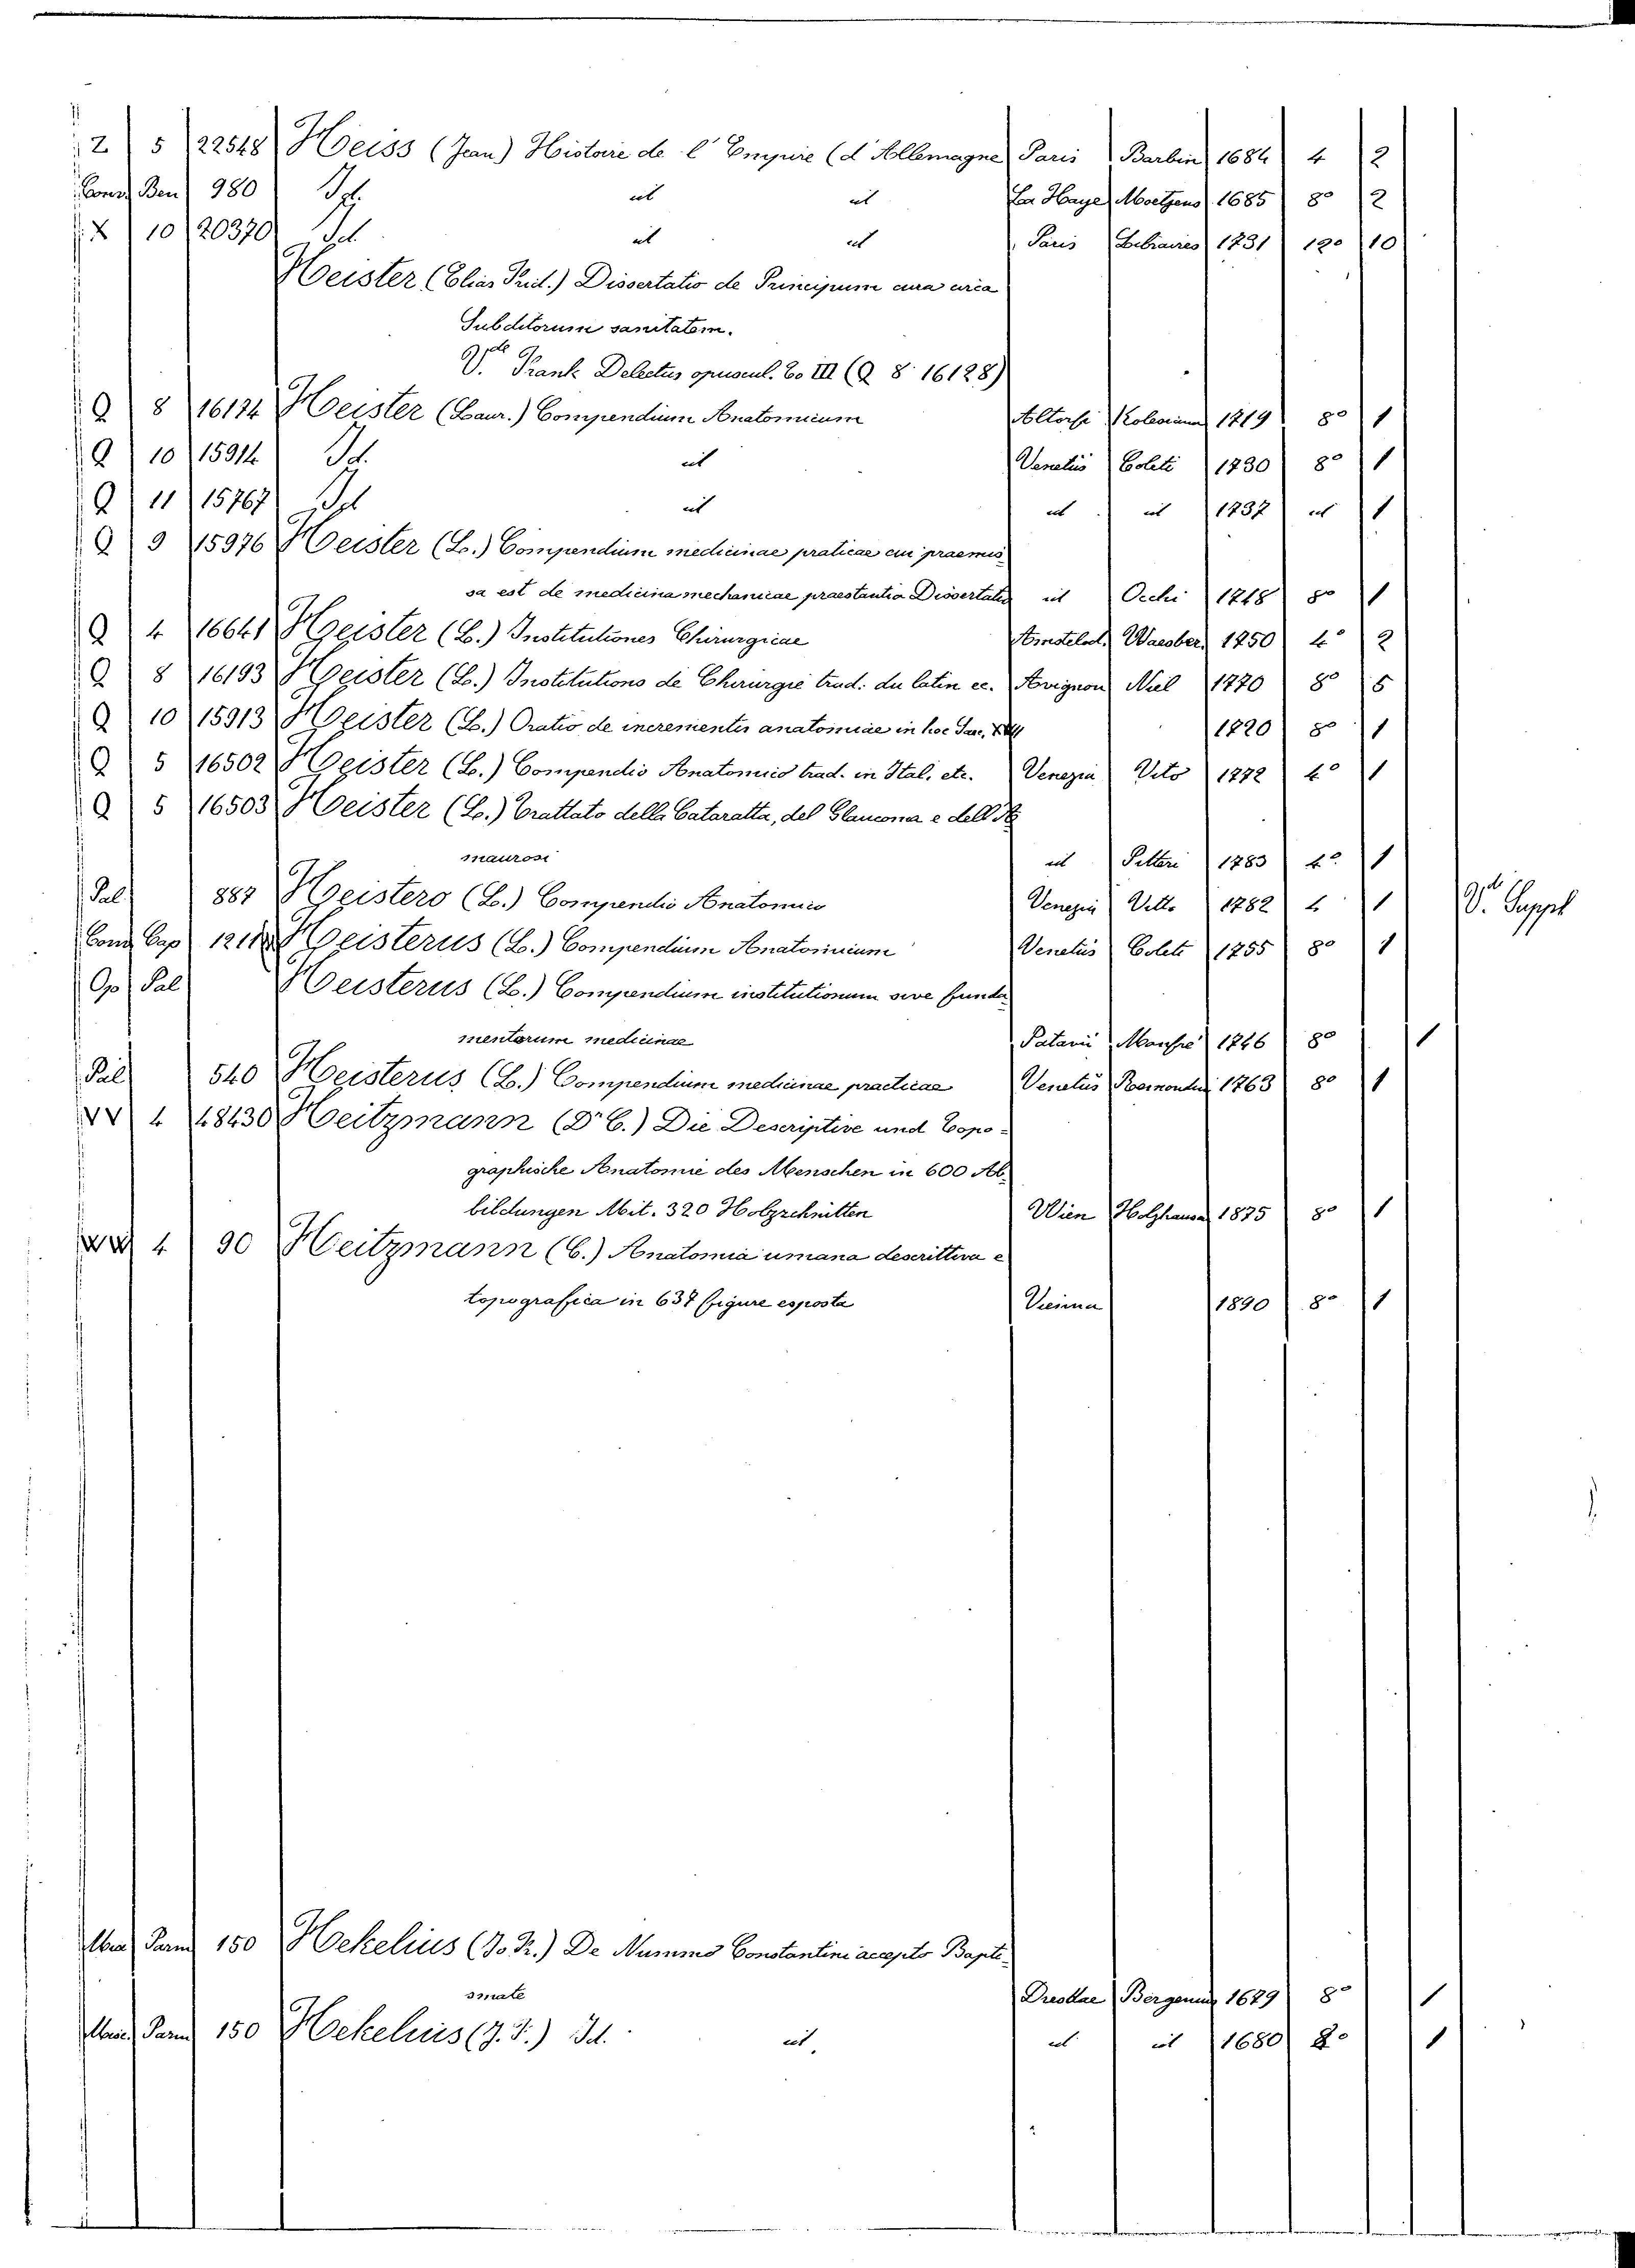 Z 5 22548 Heiss (Jean) Histoire de l'Empire (d'Allemagne Paris Barbin 1684 4 2
Conv. Ben 980 Id. ut ut La Haye Moetjens 1685 8° 2
X 10 20370 Id. ut ut Paris Libraires 1731 12° 10
Heister (Elias Frid.) Dissertatio de Principum cura circa
Subditorum sanitatem.
V.de Frank Delectus opuscul. To III (Q 8 16128)
Q 8 16174 Heister (Laur.) Compendium Anatomicum Altorfi 1719 8° 1
Q 10 15914 Id. ut Venetiis Coleti 1730 8° 1
Q 11 15767 Id ut ut ut 1737 ut 1
Q 9 15976 Heister (L.) Compendium medicinae praticae cui praemis
sa est de medicina mechanicae praestantia Dissertatio ut Occhi 1748 8° 1
Q 4 16641 Heister (L.) Institutiones Chirurgicae Amstelod. Waesber. 1750 4° 2
Q 8 16193 Heister (L.) Institutions de Chirurgie trad. du latin ec. Avignon Niel 1770 8° 5
Q 10 15913 Heister (L.) Oratio de incrementis anatomiae in hoc Saec. 1720 8° 1
Q 5 16502 Heister (L.) Compendio Anatomico trad. in Ital. etc. Venezia Vito 1772 4° 1
Q 5 16503 Heister (L.) Trattato della Cataratta, del Glaucoma e dell'A
maurosi ut Pitteri 1783 4° 1
Pal. 887 Heistero (L.) Compendio Anatomico Venezia Vitto 1782 4 1 V.de Suppl
Conv. Cap Heisterus (L.) Compendium Anatomicum Venetiis Coleti 1755 8° 1
Op Pal Heisterus (L.) Compendium institutionum sive funda
mentorum medicinae Patavii Manfrè 1746 8° 1
Pal 540 Heisterus (L.) Compendium medicinae practicae Venetiis Remondin 1763 8° 1
VV 4 48430 Heitzmann (Dr C.) Die Descriptive und Topo-
graphische Anatomie des Menschen in 600 Ab
bildungen Mit. 320 Holzschnitten Wien Holzhausen 1875 8° 1
WW 4 90 Heitzmann (C.) Anatomia umana descrittiva e
topografica in 637 figure esposta Vienna 1890 8° 1
Parm 150 Hekelius (Jo. Fr.) De Nummo Constantini accepto Bapti-
smate Dresdae Bergenius 1679 8° 1
Parm 150 Hekelius (J. F.) Id. ut. ut ut 1680 8° 1